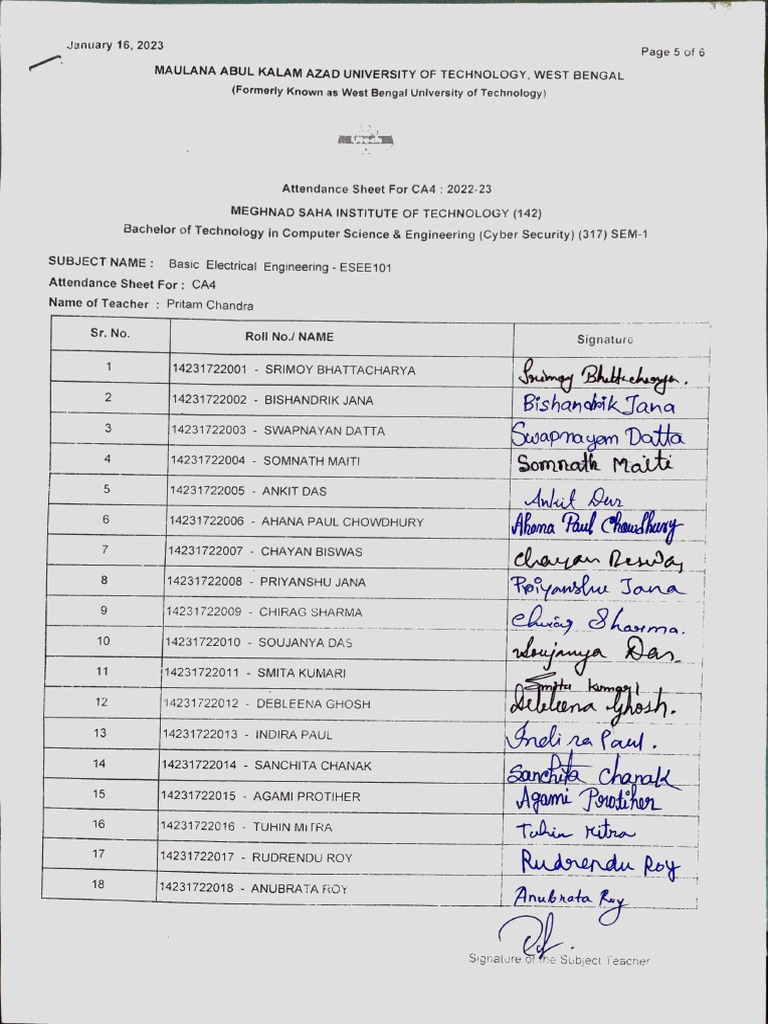 January 16, 2023
Page 5 of 6
MAULANA ABUL KALAM AZAD UNIVERSITY OF TECHNOLOGY, WEST BENGAL
(Formerly Known as West Bengal University of Technology)
Attendance Sheet For CA4 : 2022-23
MEGHNAD SAHA INSTITUTE OF TECHNOLOGY (142)
Bachelor of Technology in Computer Science & Engineering (Cyber Security) (317) SEM-1
SUBJECT NAME : Basic Electrical Engineering - ESEE101
Attendance Sheet For : CA4
Name of Teacher : Pritam Chandra
Sr. No. Roll No./ NAME Signature
1 14231722001 - SRIMOY BHATTACHARYA Srimoy Bhattacharya.
2 14231722002 - BISHANDRIK JANA Bishandrik Jana
3 14231722003 - SWAPNAYAN DATTA Swapnayan Datta
4 14231722004 - SOMNATH MAITI Somnath Maiti
5 14231722005 - ANKIT DAS Ankit Das
6 14231722006 - AHANA PAUL CHOWDHURY Ahana Paul Chowdhury
7 14231722007 - CHAYAN BISWAS Chayan Biswas
8 14231722008 - PRIYANSHU JANA Priyanshu Jana
9 14231722009 - CHIRAG SHARMA Chirag Sharma.
10 14231722010 - SOUJANYA DAS Soujanya Das
11 14231722011 - SMITA KUMARI Smita Kumari
12 14231722012 - DEBLEENA GHOSH Debleena Ghosh.
13 14231722013 - INDIRA PAUL Indira Paul.
14 14231722014 - SANCHITA CHANAK Sanchita Chanak
15 14231722015 - AGAMI PROTIHER Agami Protiher
16 14231722016 - TUHIN MITRA Tuhin Mitra
17 14231722017 - RUDRENDU ROY Rudrendu Roy
18 14231722018 - ANUBRATA ROY Anubrata Roy
Signature of the Subject Teacher